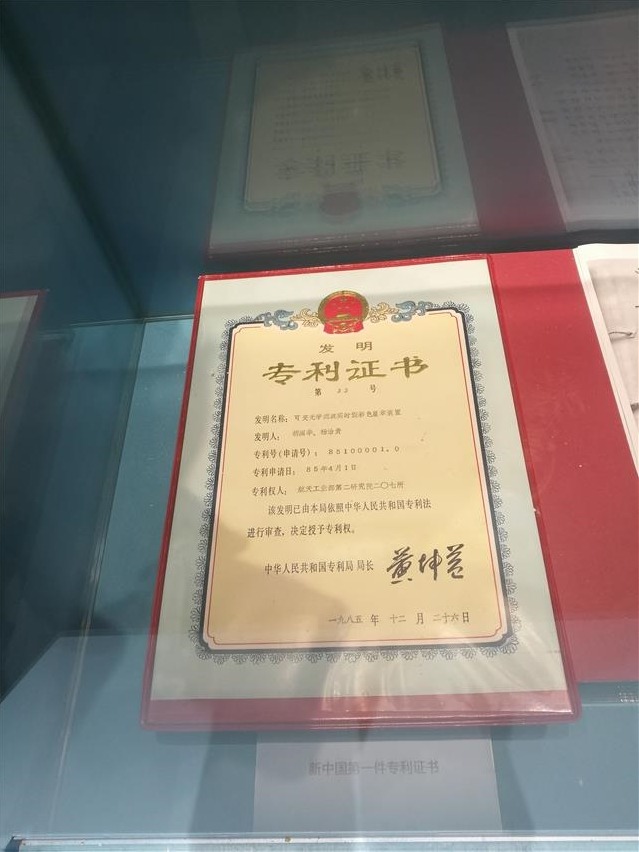 发明
专利证书
第 22 号
发明名称：可变光学滤波实时假彩色显示装置
发明人：胡溧华、杨诒贵
专利号(申请号)：85100001.0
专利申请日：85年4月1日
专利权人：航天工业部第二研究院二〇七所
该发明已由本局依照中华人民共和国专利法
进行审查，决定授予专利权。
中华人民共和国专利局 局长 黄坤益
一九八五 年 十二 月 二十六日
新中国第一件专利证书